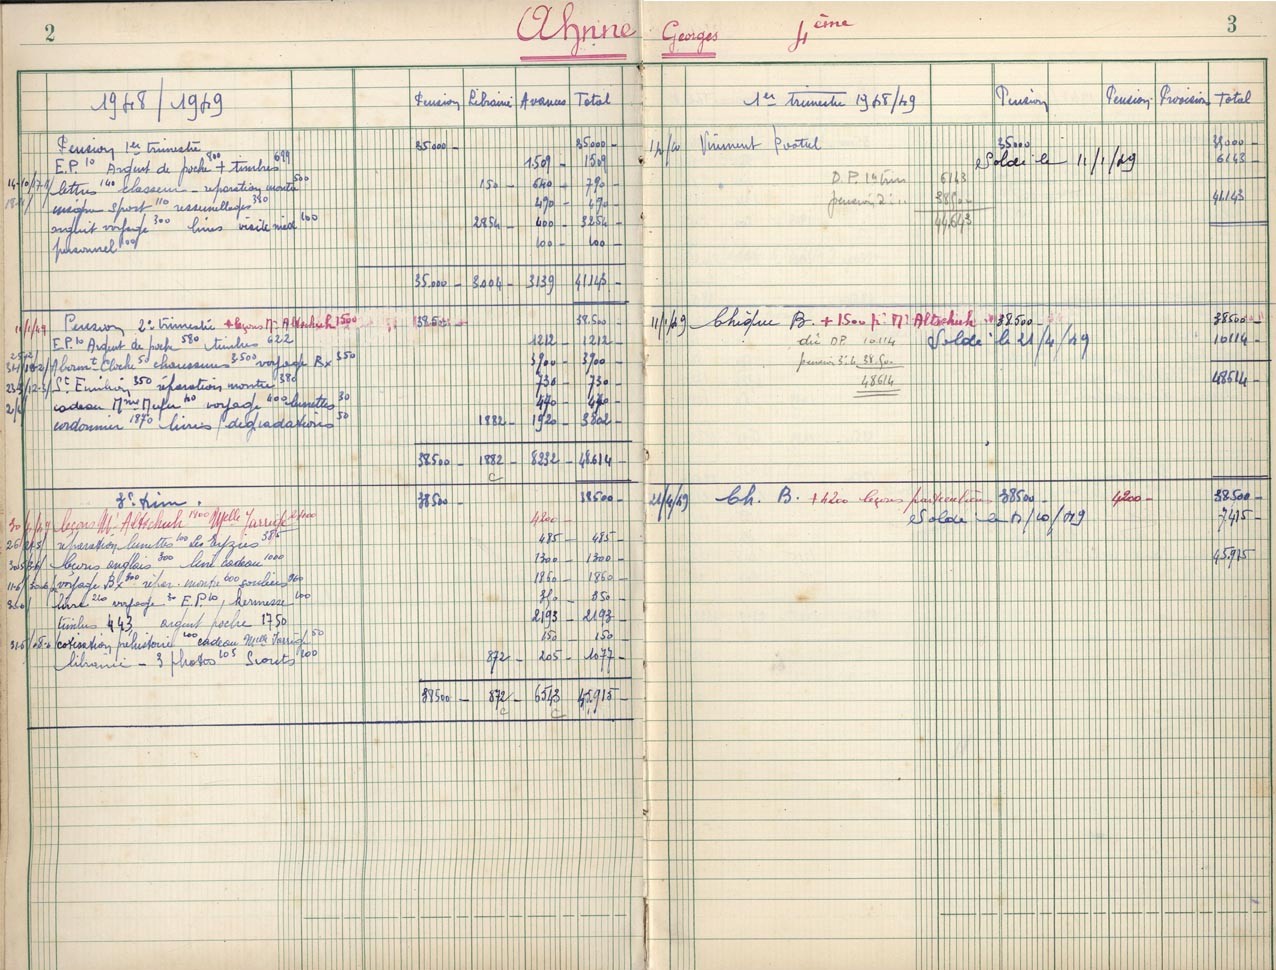 2
Ahnne Georges 4ème
3
1948/1949 Pension Librairie Avances Total
Pension 1er trimestre 35000 - 35000 -
E.P. 10 Argent de poche 800 + timbres 699 1509 - 1509
lettres 140 classeur - réparation montre 500 150 - 640 - 790 -
insigne sport 110 ressemellages 380 490 - 490 -
voyage 300 livres visite méd 100 2854 - 400 - 3254 -
personnel 100 100 - 100 -
35.000 - 3.004 - 3139 41143 -
11/1/49 Pension 2e trimestre + leçons Mr Altschuh 1500 38.500 - 38.500 -
E.P. 10 Argent de poche 580 timbres 622 1212 - 1212 -
Cloche 50 chaussures 3500 voyage Bx 350 3900 - 3900 -
St Emilion 350 réparation montre 380 730 - 730 -
cadeau Mme 40 voyage 400 lunettes 30 470 - 470 -
cordonnier 1870 livres / dégradations 50 1882 - 1920 - 3802 -
38500 - 1882 - 8232 - 48.614 -
c
3e trim. 38500 - 38500 -
leçons Mr Altschuh 1400 Melle Jarrige 4200 -
réparation lunettes 100 Les Eyzies 385 485 - 485 -
leçons anglais 300 livre cadeau 1000 1300 - 1300 -
voyage Bx 300 répar. montre 600 souliers 960 1860 - 1860 -
livre 210 voyage 30 E.P. 10, kermesse 100 350 - 350 -
timbres 443 argent poche 1750 2193 - 2193 -
cotisation préhistoire 100 cadeau Melle Jarrige 50 150 - 150 -
librairie - 3 photos 105 Scouts 100 872 - 205 - 1077 -
38500 - 872 - 6543 - 45.915 -
c c
1er trimestre 1948/49 Pension Pension Provision Total
Virement Postal 35000 35000 -
Soldé le 11/1/49 6143 -
D.P. 1er trim 6143
pension 2e 38500 41143
44643
11/1/49 Chèque B. + 1500 pr Mr Altschuh 38500 38500 -
dû DP. 10114 Soldé le 21/4/49 10114 -
pension 3e t. 38.500
48614 48614 -
21/4/49 Ch. B. + 4200 leçons particulières 38500 - 4200 - 38500 -
Soldé le /10/49 7415 -
45.915